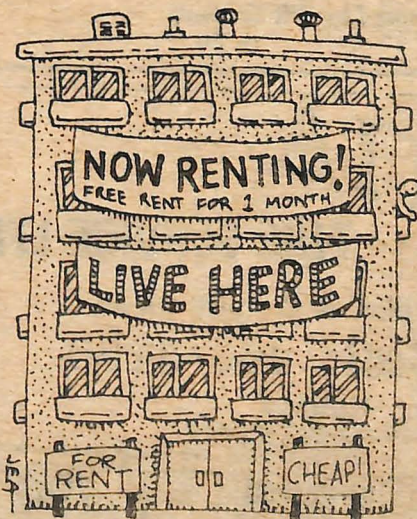 NOW RENTING!
FREE RENT FOR 1 MONTH
LIVE HERE
FOR
RENT
CHEAP!
JEA